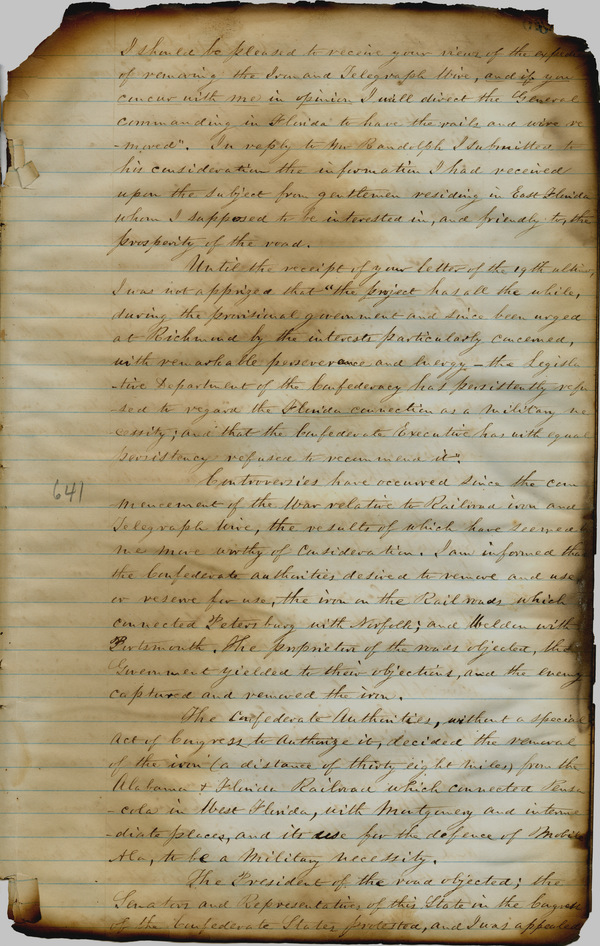 I should be pleased to receive your views of the
of removing the Iron and Telegraph Wire, and if you
concur with me in opinion I will direct the General
commanding in Florida to have the rails and wire re
-moved". In reply to Mr Randolph I submitted to
his consideration the information I had received
upon the subject from gentlemen residing in East Florida
whom I supposed to be interested in, and friendly to, the
prosperity of the road.
Until the receipt of your letter of the 19th ultimo,
I was not apprized that "the project has all the while,
during the provisional government and since been urged
at Richmond by the interests particularly concerned,
with remarkable perseverance and Energy - the Legisla
-tive Department of the Confederacy has persistently refu
-sed to regard the Florida connection as a Military ne
cessity; and that the Confederate Executive has with equal
persistency refused to recommend it".
Controversies have occurred since the com
-mencement of the War relative to Railroad iron and
Telegraph Wire, the results of which have seemed
me more worthy of consideration. I am informed that
the Confederate authorities desired to remove and use
or reserve for use, the iron on the Rail roads which
connected Petersburg with Norfolk; and Weldon with
Portsmouth. The proprietors of the roads objected, the
Government yielded to their objections, and the enemy
captured and removed the iron.
641
The Confederate Authorities, without a special
act of Congress to Authorize it, decided the removal
of the iron (a distance of thirty eight miles) from the
Alabama & Florida Railroad which connected Pensa
-cola in West Florida, with Montgomery and interme
-diate places, and its use for the defence of Mobile
Ala, to be a Military necessity.
The President of the road objected; the
Senators and Representatives of this State in the Congress
of the Confederate States protested, and I was appealed